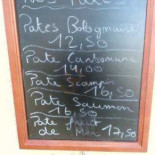 Pates Bolognaise
12,50
Pate Carbonara
14,00
Pate Scampi
16,50
Pate Saumon
16,50
Pate Fruit
de Mer 17,50